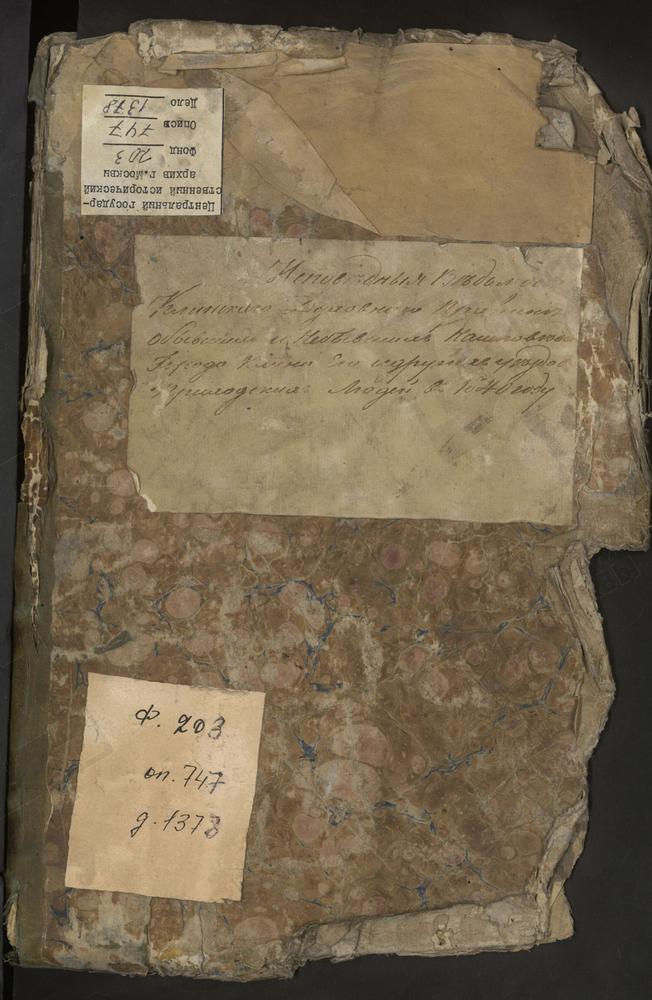 Центральный государ-
ственный исторический
архив г. Москвы
Фонд 203
Опись 747
Дело 1378
Исповедныя Ведомос
Клинского Духовного Правлен
о бывшихъ и Небывшихъ
Города Клина Его и других
Людей За 1840 году
ф. 203
оп. 747
д. 1378